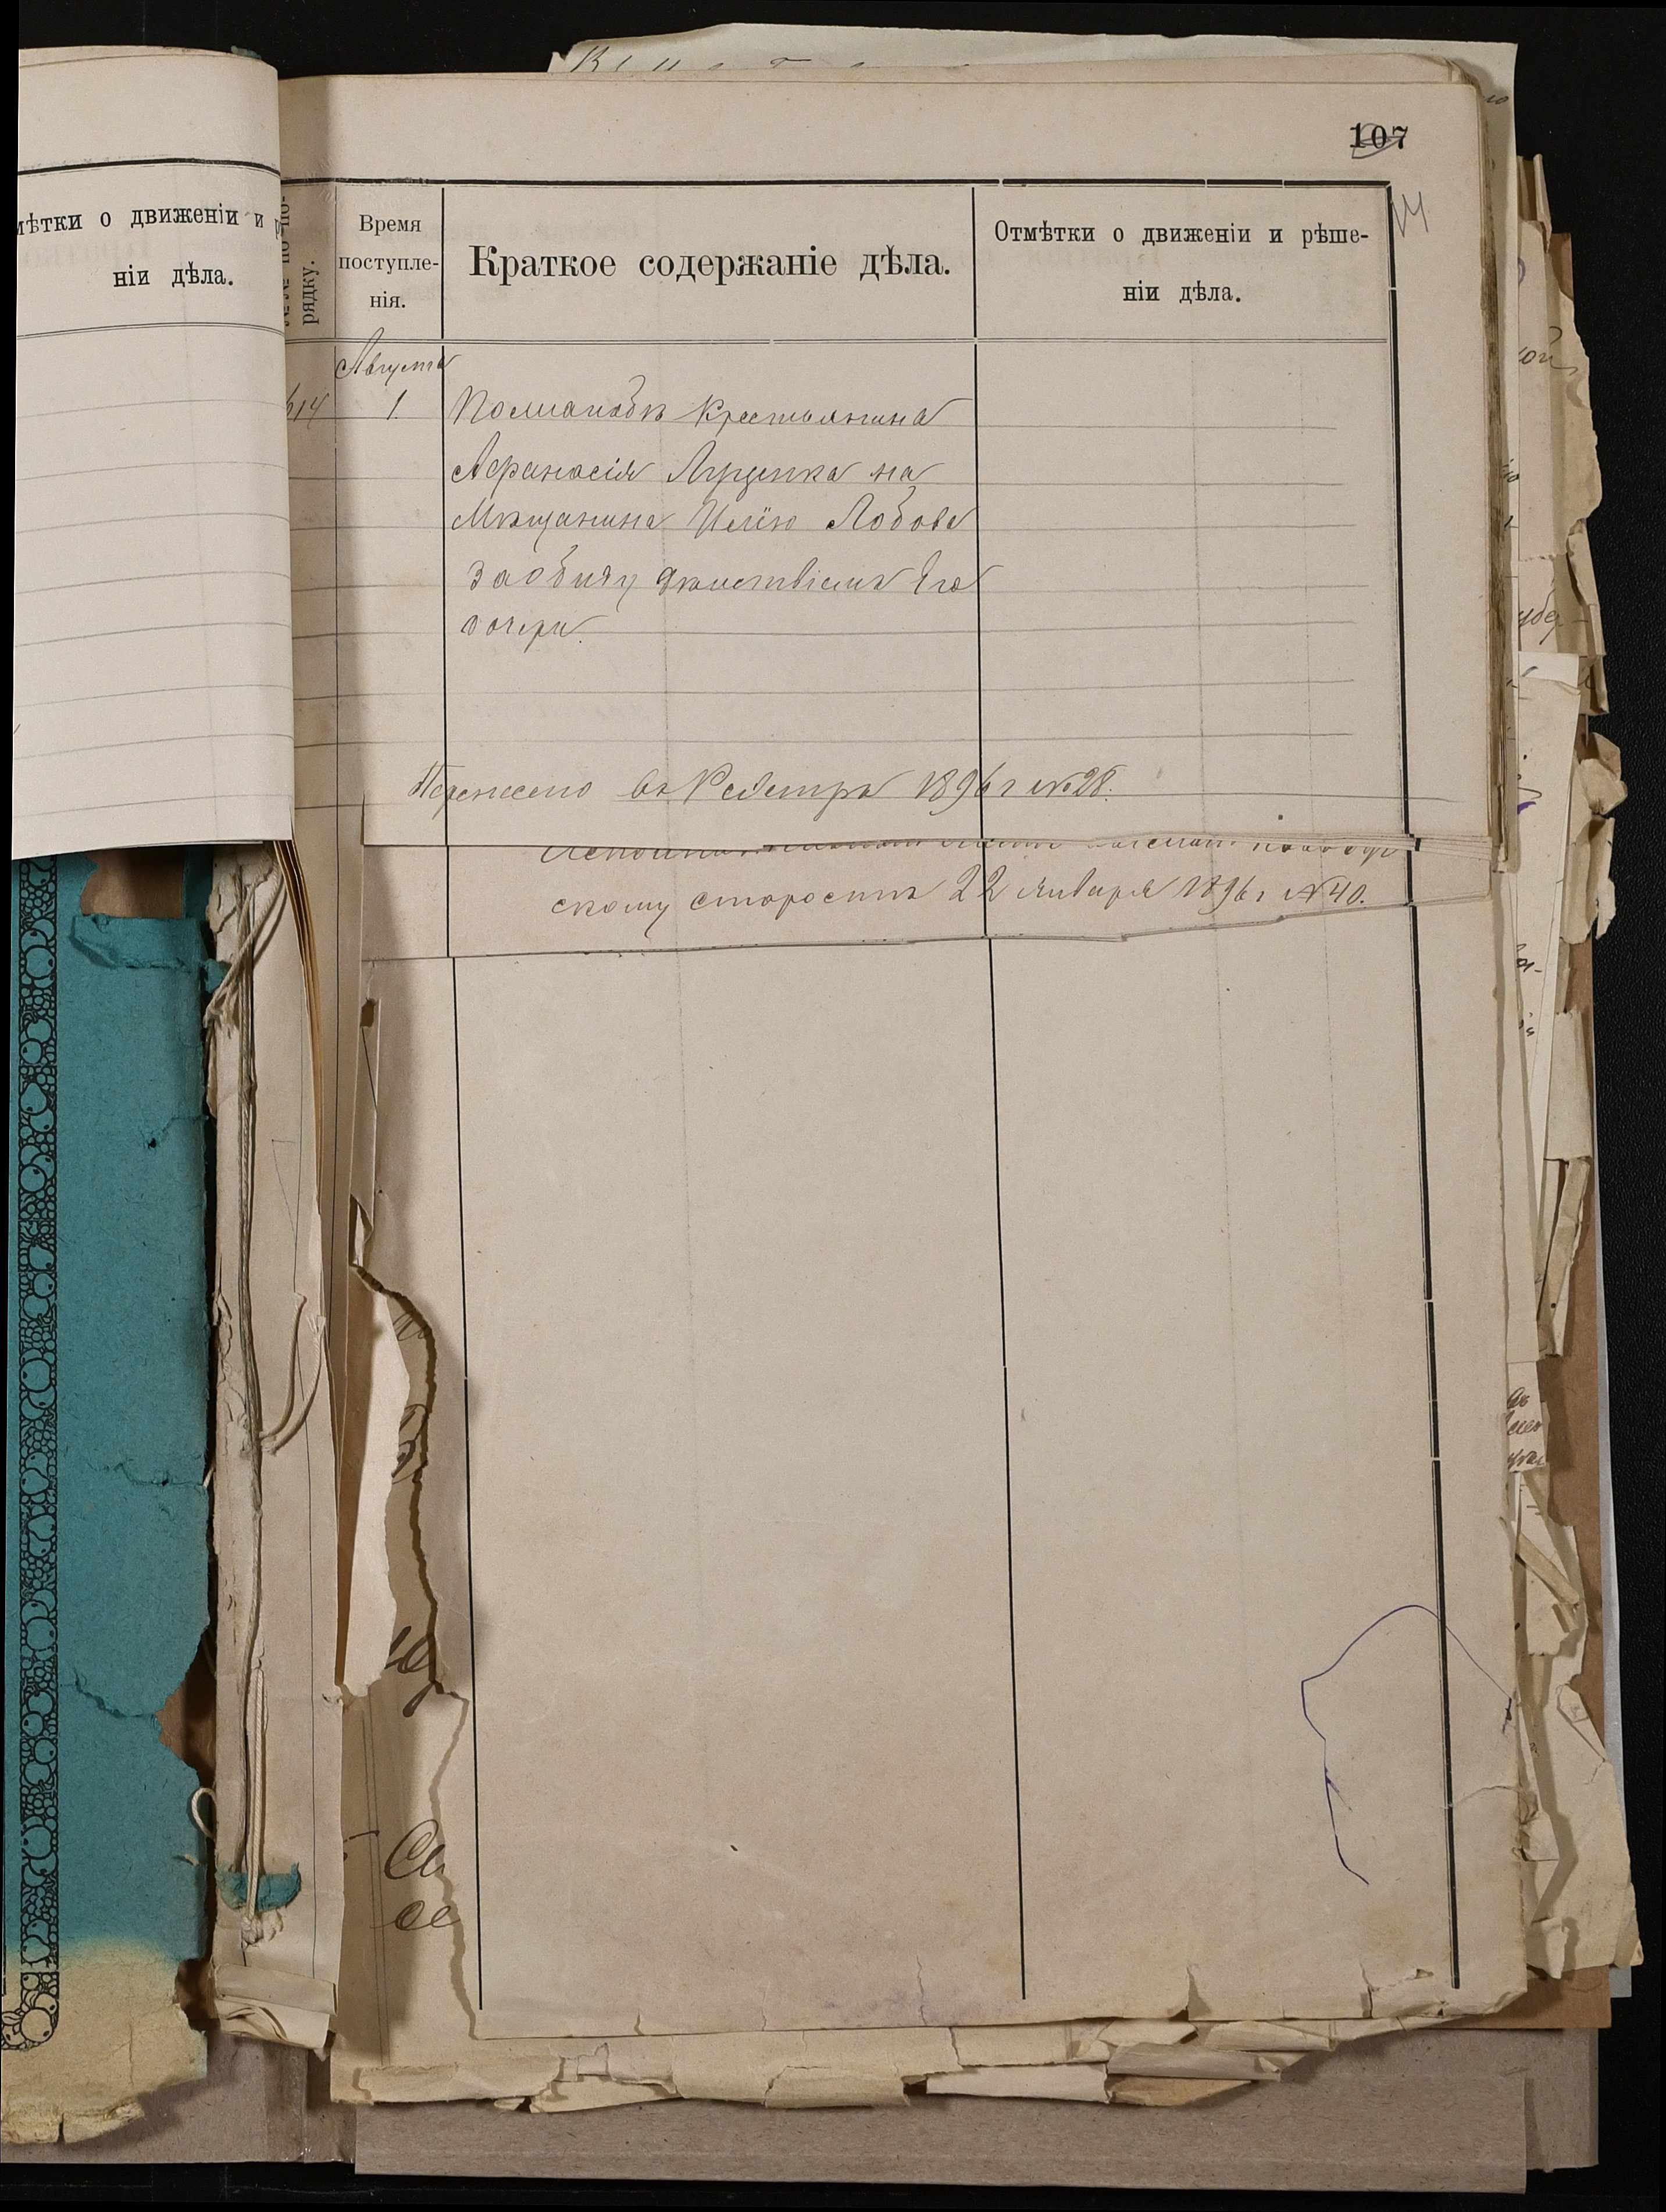 107
14
мѣтки о движеніи и
ніи дѣла.
№№ по по-
рядку.
Время
поступле-
нія.
Краткое содержаніе дѣла.
Отмѣтки о движеніи и рѣше-
ніи дѣла.
Августа
614 1. По жалобѣ крестьянина
Афанасія Луценка на
Мѣщанина Илію Лобова
за обиду дѣйствіемъ его
дочери.
Перенесено въ Реестръ 1896 г №28.
скому старостѣ 22 января 1896 г №40.